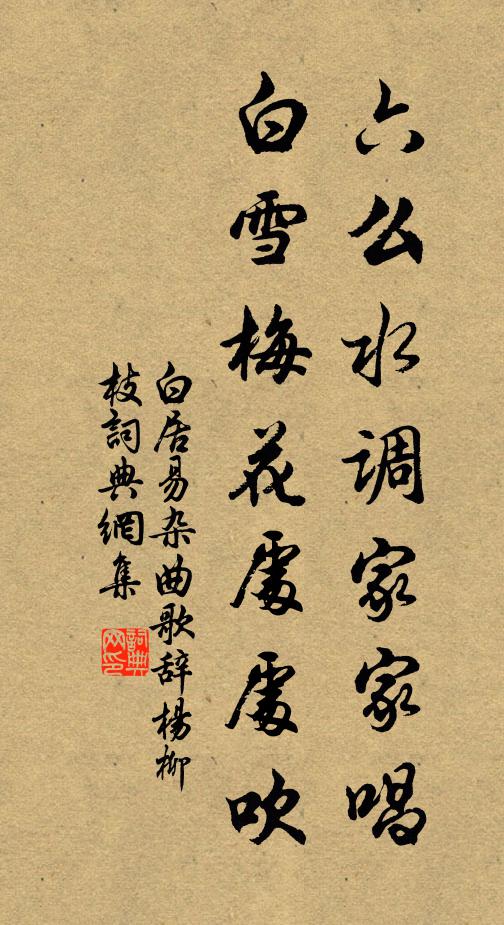 六么水调家家唱
白雪梅花處處吹
白居易杂曲歌辞楊柳
枝詞典網集
詞典
网印